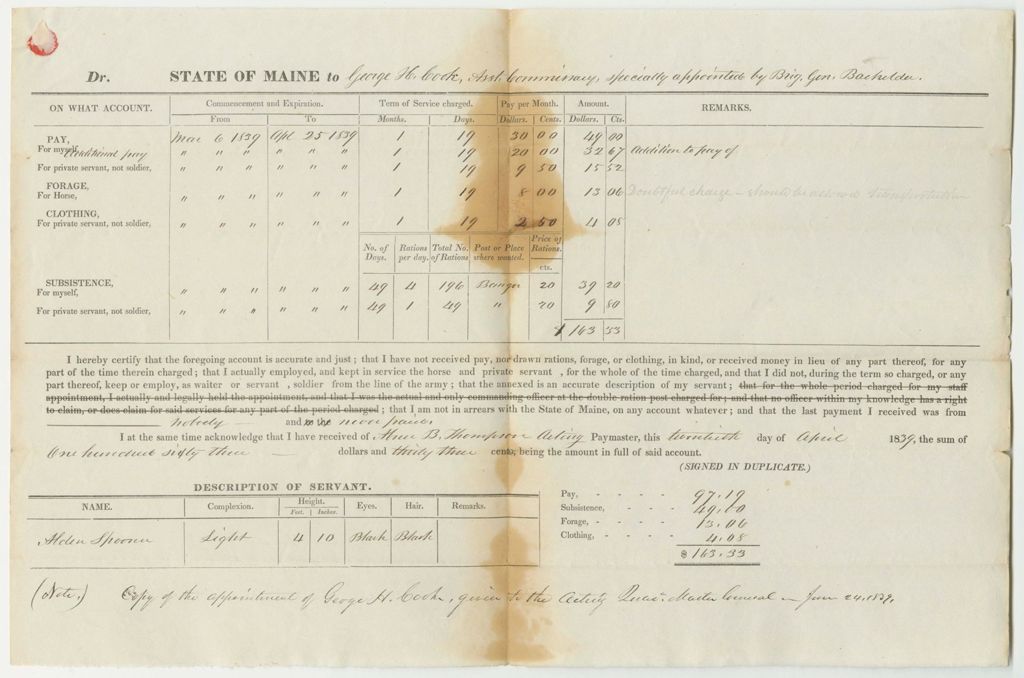 Dr. STATE OF MAINE to George H. Cook, Asst. Commissary, specially appointed by Brig. Gen. Bachelder.
ON WHAT ACCOUNT. Commencement and Expiration. Term of Service charged. Pay per Month. Amount. REMARKS.
From To Months. Days. Dollars. Cents. Dollars. Cts.
PAY,
For myself, Mar 6 1839 Apl 25 1839 1 19 30 00 49 00
Additional pay " " " " " " 1 19 20 00 32 67 Addition to pay of
For private servant, not soldier, " " " " " " 1 19 9 50 15 52
FORAGE,
For Horse, " " " " " " 1 19 8 00 13 06 Doubtful charge - should be
CLOTHING,
For private servant, not soldier, " " " " " " 1 19 2 50 4 08
No. of Days. Rations per day. Total No. of Rations Post or Place where wanted. Price of Rations.
cts.
SUBSISTENCE,
For myself, " " " " " " 49 4 196 Bangor 20 39 20
For private servant, not soldier, " " " " " " 49 1 49 " 20 9 80
$ 163 33
I hereby certify that the foregoing account is accurate and just; that I have not received pay, nor drawn rations, forage, or clothing, in kind, or received money in lieu of any part thereof, for any
part of the time therein charged; that I actually employed, and kept in service the horse and private servant , for the whole of the time charged, and that I did not, during the term so charged, or any
part thereof, keep or employ, as waiter or servant , soldier from the line of the army; that the annexed is an accurate description of my servant; that for the whole period charged for my staff
appointment, I actually and legally held the appointment, and that I was the actual and only commanding officer at the double ration post charged for; and that no officer within my knowledge has a right
to claim, or does claim for said services for any part of the period charged; that I am not in arrears with the State of Maine, on any account whatever; and that the last payment I received was from
nobody and to the never paid.
I at the same time acknowledge that I have received of B. Thompson Acting Paymaster, this twentieth day of April 1839, the sum of
One hundred sixty three dollars and thirty three cents, being the amount in full of said account.
(SIGNED IN DUPLICATE.)
DESCRIPTION OF SERVANT.
NAME. Complexion. Height. Eyes. Hair. Remarks.
Feet. Inches.
Alden Spooner Light 4 10 Black Black
Pay, - - - - 97.19
Subsistence, - - - 49.00
Forage, - - - - 13.06
Clothing, - - - - 4.08
$ 163.33
(Note.) Copy of the appointment of George H. Cook, given to the Acting Quar. Master General - June 24, 1839.